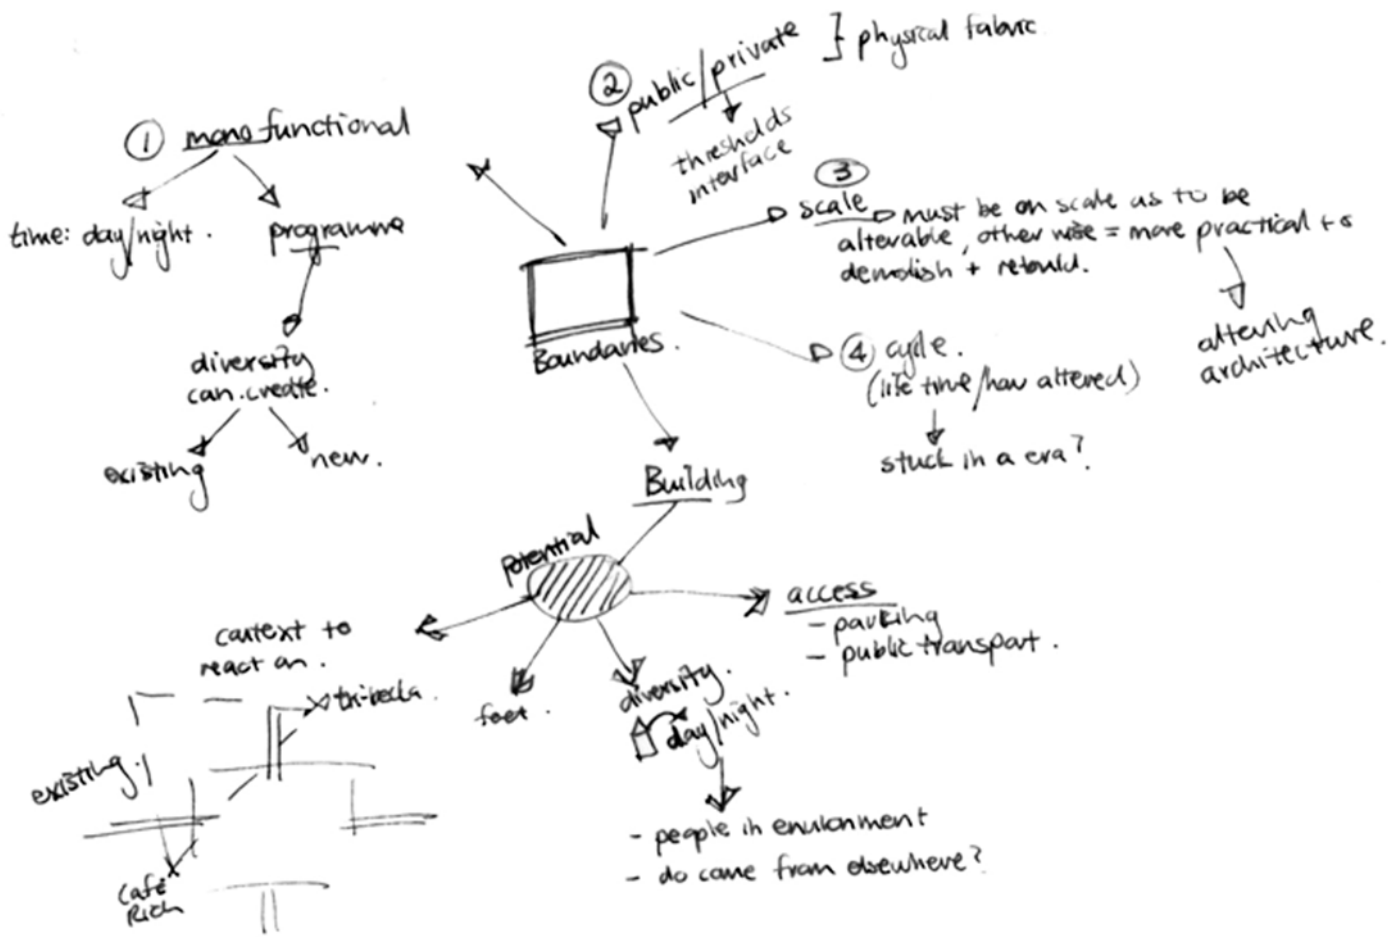 ① monofunctional
time: day/night.
programme
diversity
can create.
existing
new.
② public/private } physical fabric
thresholds
interface
③
scale must be on scale as to be
alterable, other wise = more practical to
demolish + rebuild.
altering
architecture.
Boundaries.
④ cycle.
(life time/how altered)
stuck in a era?
Building
Potential
access
- parking
- public transport.
context to
react on.
feet.
diversity.
day/night.
- people in environment
- do come from elsewhere?
tri-becta.
existing.
Café
Rich